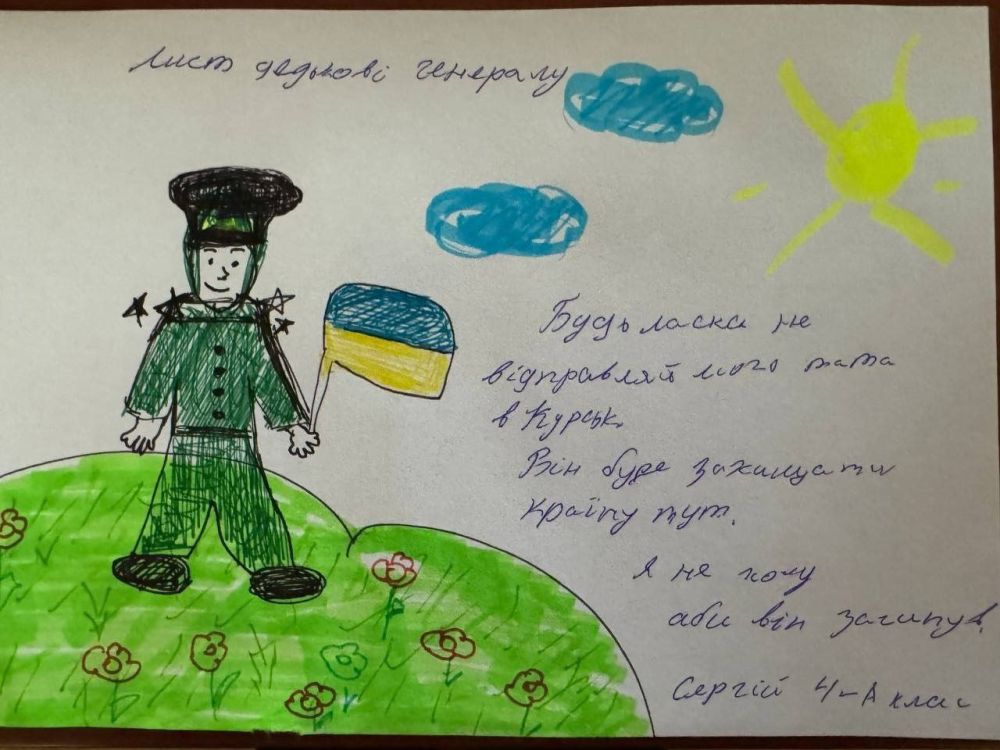 Лист дядькові генералу
Будь ласка не
відправляй мого тата
в Курськ.
Він буде захищати
країну тут.
Я не хочу
аби він загинув.
Сергій 4-А клас